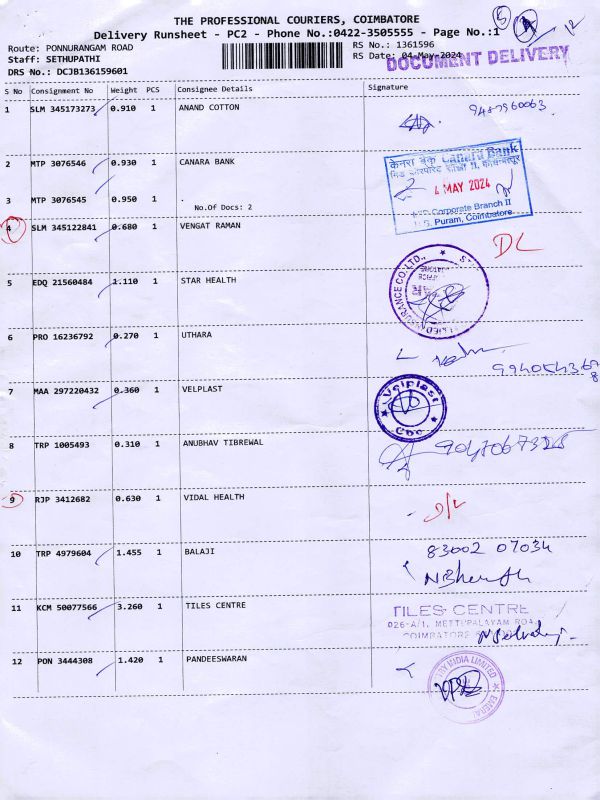 THE PROFESSIONAL COURIERS, COIMBATORE
Delivery Runsheet - PC2 - Phone No.:0422-3505555 - Page No.:1
5
12
Route: PONNURANGAM ROAD
RS No.: 1361596
Staff: SETHUPATHI
RS Date: 04-May-2024
DOCUMENT DELIVERY
DRS No.: DCJB136159601
S No Consignment No Weight PCS Consignee Details Signature
1 SLM 345173273 0.910 1 ANAND COTTON
2 MTP 3076546 0.930 1 CANARA BANK
केनरा बैंक Canara Bank
4 MAY 2024
Corporate Branch II
R.S. Puram, Coimbatore
3 MTP 3076545 0.950 1 .
No.Of Docs: 2
4 SLM 345122841 0.680 1 VENGAT RAMAN
DL
5 EDQ 21560484 1.110 1 STAR HEALTH
6 PRO 16236792 0.270 1 UTHARA
7 MAA 297220432 0.360 1 VELPLAST
Velplast
Cbe
8 TRP 1005493 0.310 1 ANUBHAV TIBREWAL
9 RJP 3412682 0.630 1 VIDAL HEALTH
D/L
10 TRP 4979604 1.455 1 BALAJI
83002 07034
11 KCM 50077566 3.260 1 TILES CENTRE
TILES CENTRE
026-A/1, METTUPALAYAM ROAD
COIMBATORE
12 PON 3444308 1.420 1 PANDEESWARAN
INDIA LIMITED